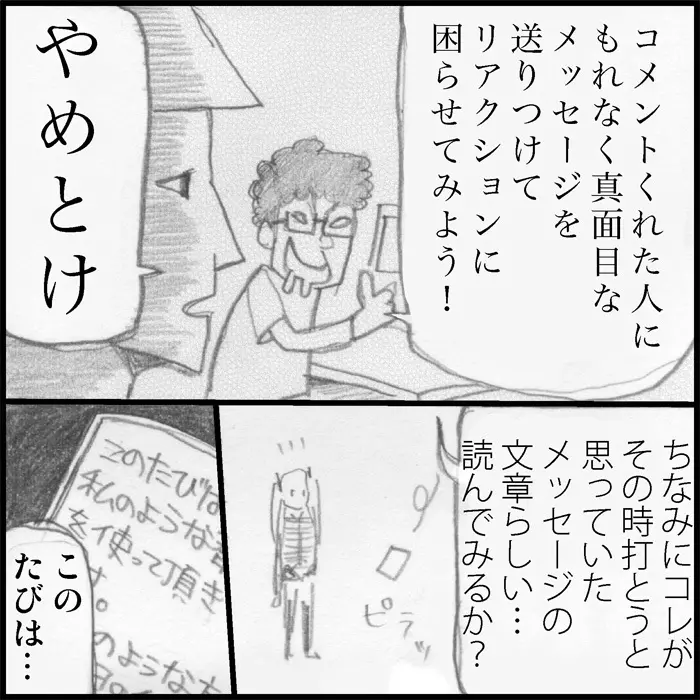 コメントくれた人に
もれなく真面目な
メッセージを
送りつけて
リアクションに
困らせてみよう！
やめとけ
ちなみにコレが
その時打とうと
思っていた
メッセージの
文章らしい…
読んでみるか？
ピラッ
このたびは
私のような
を使って頂き
のような方
この
たびは…